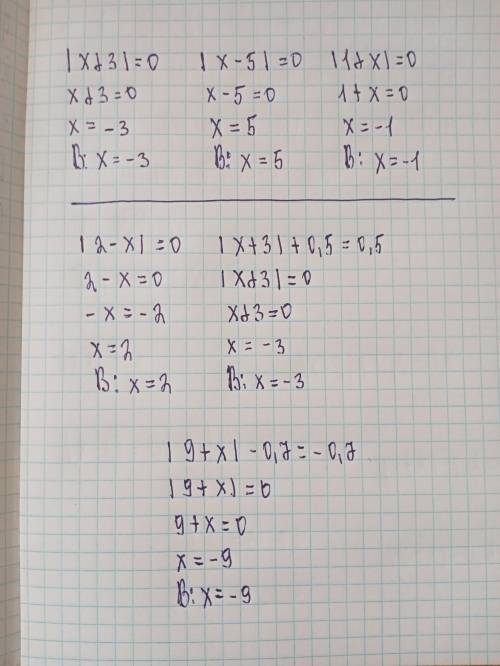 |x+3|=0 |x-5|=0 |1+x|=0
x+3=0 x-5=0 1+x=0
x=-3 x=5 x=-1
В: x=-3 В: x=5 В: x=-1
|2-x|=0 |x+3|+0,5=0,5
2-x=0 |x+3|=0
-x=-2 x+3=0
x=2 x=-3
В: x=2 В: x=-3
|9+x|-0,7=-0,7
|9+x|=0
9+x=0
x=-9
В: x=-9